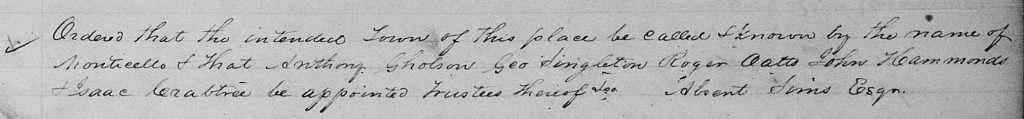 Ordered that the intended Town of this place be called & known by the name of
Monticello & that Anthony Gholson Geo Singleton Roger Oatts John Hammonds
& Isaac Crabtree be appointed Trustees thereof &c Absent Sims Esqr.